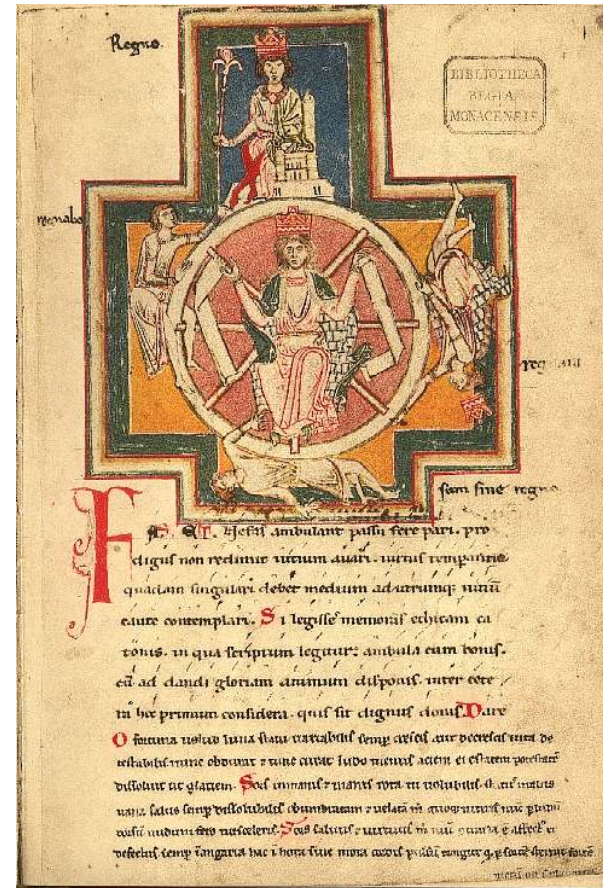 Regno.
BIBLIOTHECA
REGIA
MONACENSIS.
regnabo
regnaui
sum sine regno
FAS ET Nefas ambulant passu fere pari. pro
digus non redimit uitium auari. uirtus temperantie
quadam singulari debet medium ad utrumq; uitiū
caute contemplari. Si legisse memoras ethicam ca
tonis. in qua scriptum legitur: ambula cum bonis.
cū ad dandi gloriam animum disponis. inter cete
ra hoc primum considera. quis sit dignus donis. Dare
O fortuna uelud luna statu uariabilis semp crescis aut decrescis uita de
testabilis nunc obdurat ⁊ tunc curat ludo mentis aciem egestatem potestatē
dissoluit ut glaciem. Sors inmanis ⁊ inanis rota tu uolubilis status malus
uana salus semp dissolubilis obumbratam ⁊ uelatā m quoq; niteris nūc p ludum
dorsū nudum fero tui sceleris. Sors salutis ⁊ uirtutis m nūc affect
defectus semp angaria hac ī hora sine mora cordis pulsū tangite sternit fortē